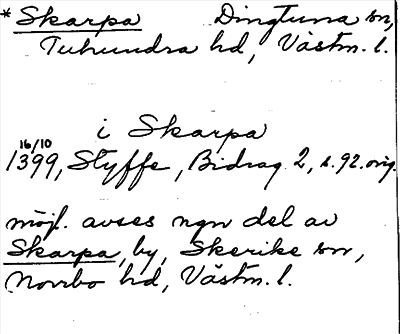 * Skarpa Dingtuna sn,
Tuhundra hd, Västm. l.
i Skarpa
16/10
1399, Styffe, Bidrag 2, s. 92. orig.
möjl. avses ngn del av
Skarpa, by, Skerike sn,
Norrbo hd, Västm. l.